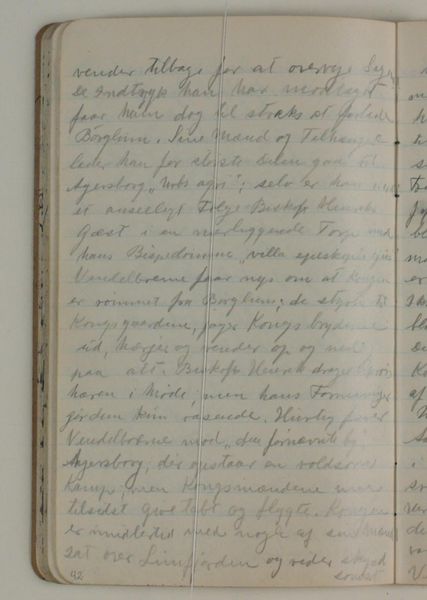 vender tilbage for at overveje
De Indtryk han har modtaget
faar ham dog til straks at forlade
Borglum. Sine Mænd og Tilhængere
leder han for største Delen gaa til
Agersborg, "urbs agri"; selv er han
et anseeligt Følge Biskop Henriks
Gæst i en nærliggende Torp ved
hans Bispedømme, villa episcopi
Vendelboerne faar nys om at Kongen
er rømmet fra Borglum; de styrter til
Kongsgaardene, jager Kongs bryderne
ud, hærjer og vender op og ned
paa alt. Biskop Henrik drager Oprørs
hæren i Møde, men hans Formaninger
gør dem kun rasende. Hurtig farer
Vendelboerne mod "den fornævnte by"
Agersborg, der opstaar en voldsom
Kamp; men Kongsmændene maa
tilsidst give tabt og flygte. Kongen
er imidlertid med nogle af sine Mænd
sat over Limfjorden og reder
42